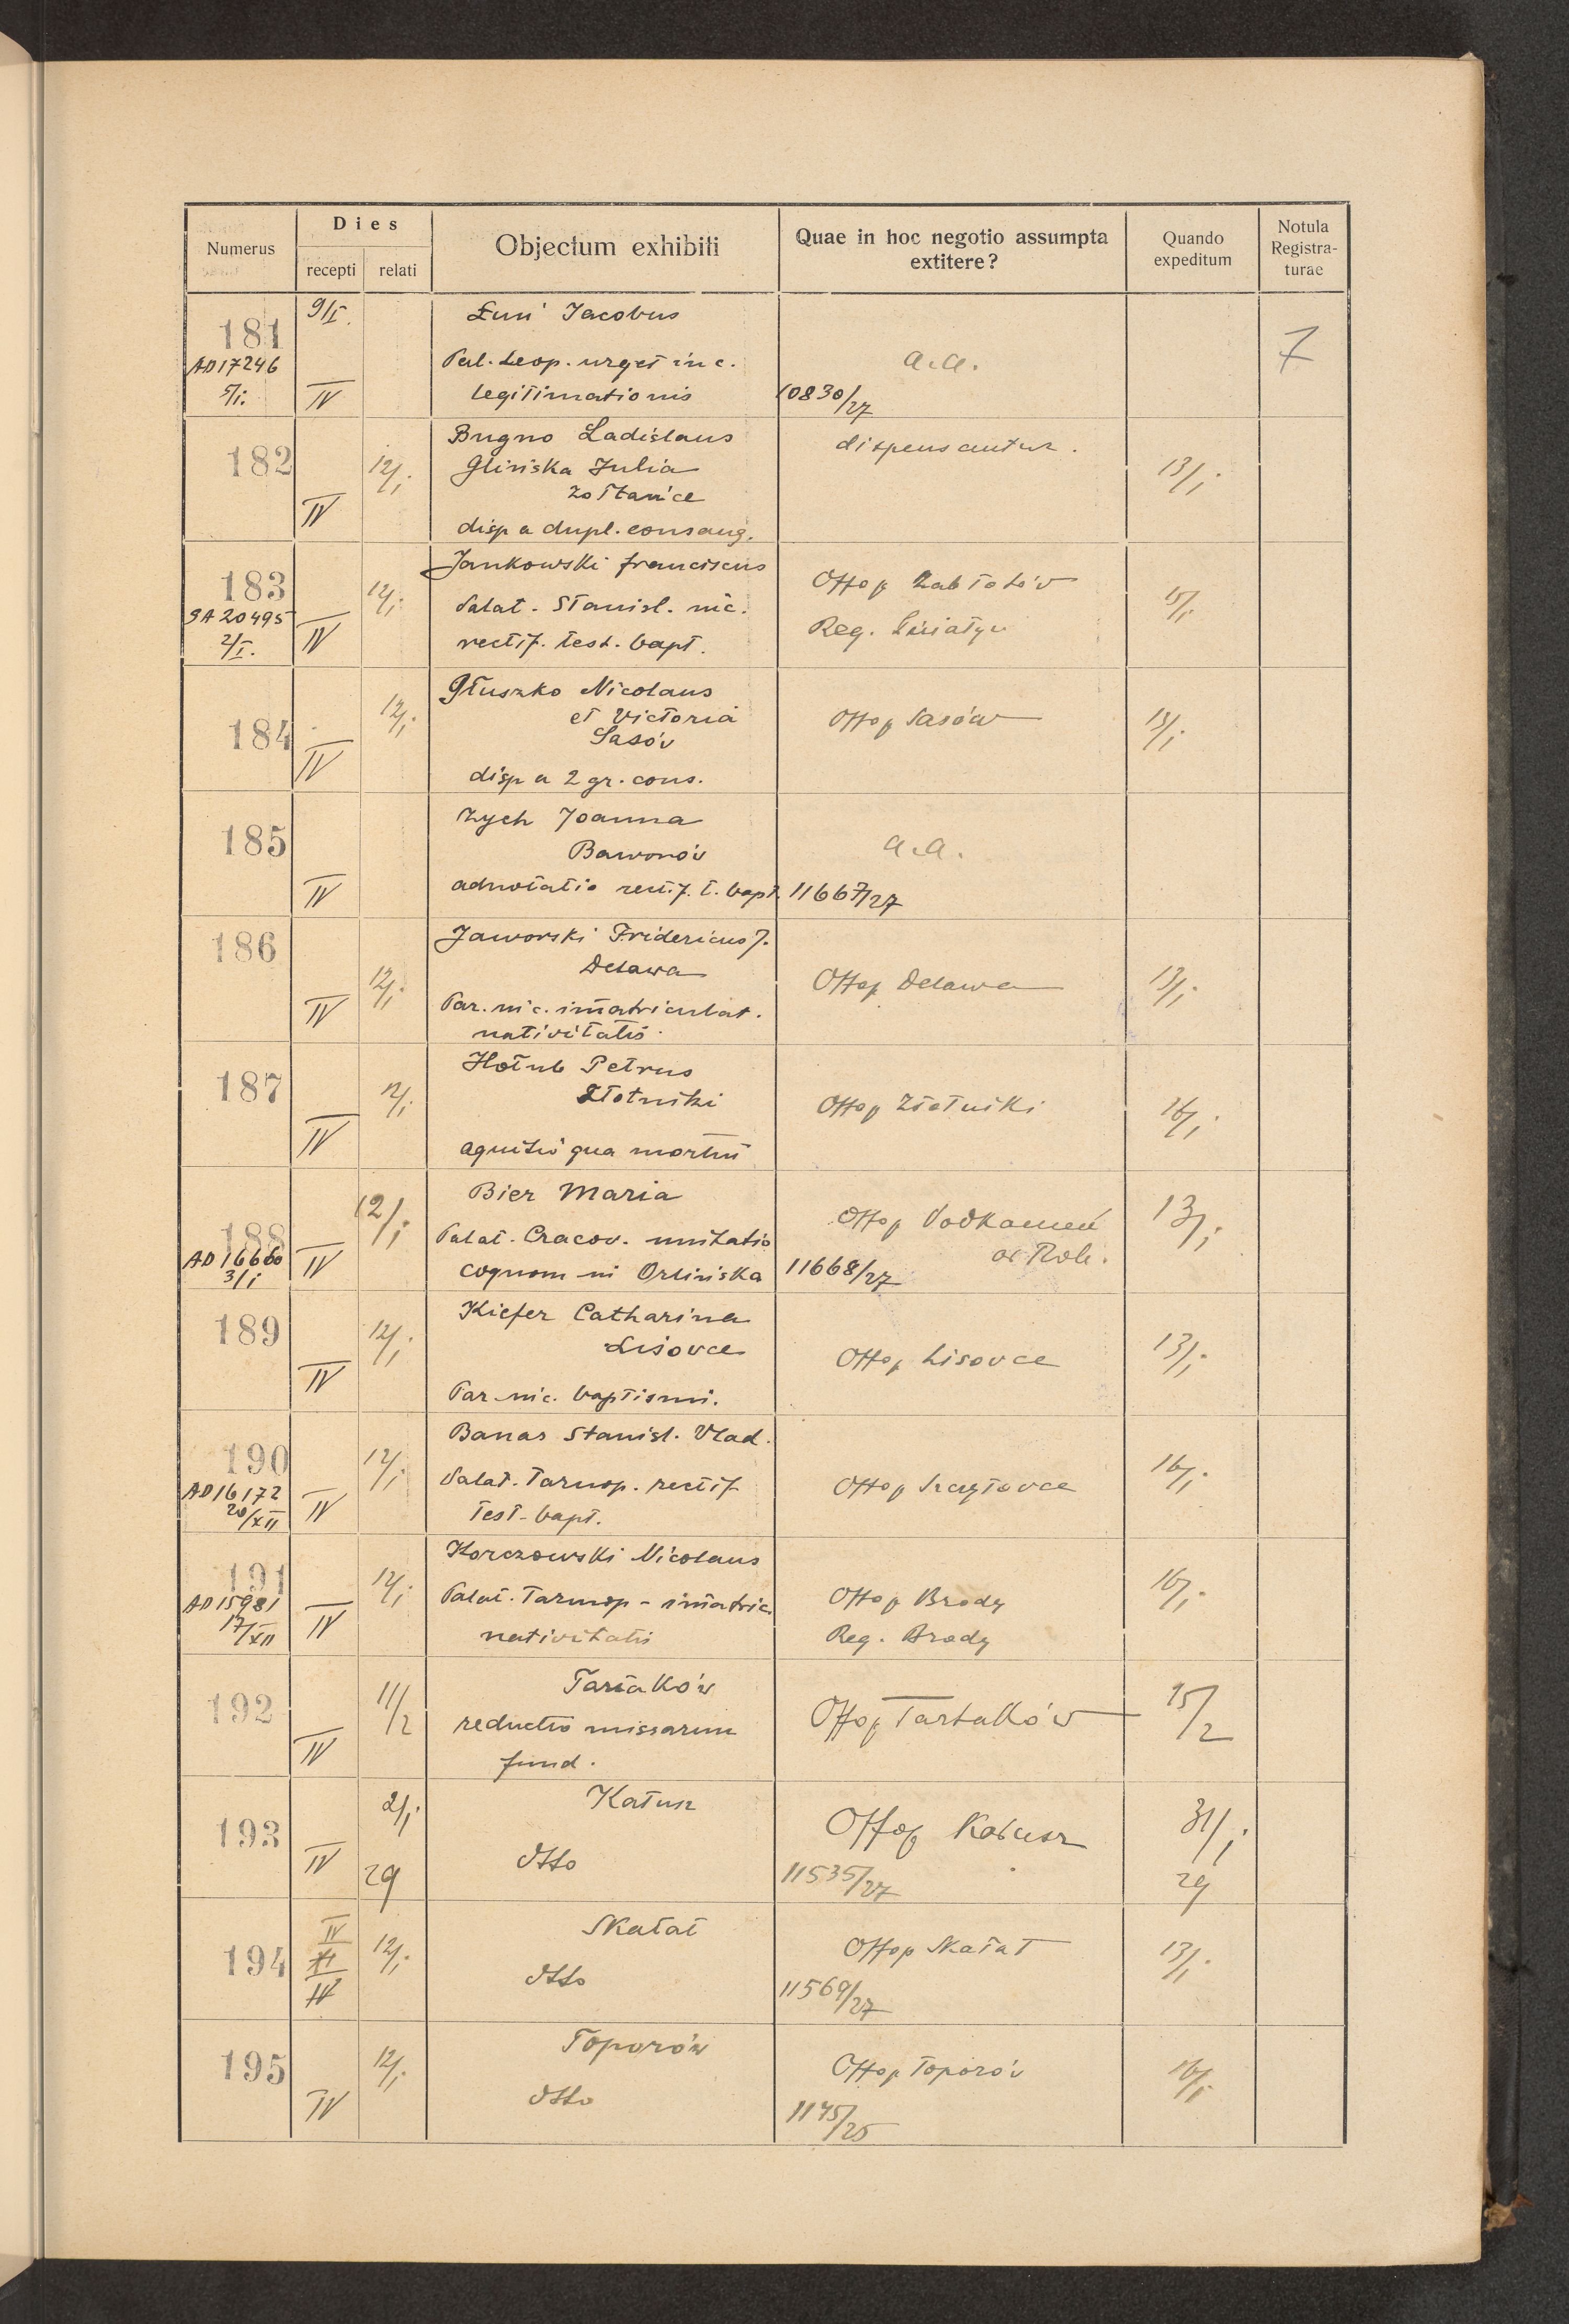 Numerus
Dies
recepti relati
Objectum exhibiti
Quae in hoc negotio assumpta
extitere?
Quando
expeditum
Notula
Registra-
turae
7
181
AD 17246
5/I.
9/I.
IV
Łuń Jacobus
Pal. Leop. urget in c.
legitimationis
a.a.
10830/27
182
IV
12/I.
Bugno Ladislaus
Glińska Julia
Żółtańce
disp a dupl. consang.
dispensantur.
13/I.
183
SA 20495
2/I.
IV
12/I.
Jankowski Franciscus
Palat. Stanisl. nic.
rectif. test. bapt.
Offo p Zabłotów
Reg. Śniatyn
15/I
184
IV
12/I.
Głuszko Nicolaus
et Victoria
Sasów
disp a 2 gr. cons.
Offo p Sasów
13/I
185
IV
Zych Joanna
Baworów
adnotatio rectif. t. bapt.
a.a.
11667/27
186
IV
12/I.
Jaworski Fridericus J.
Delawa
Par. nic. imatriculat.
nativitatis.
Offo p Delawa
13/I.
187
IV
12/I.
Hołub Petrus
Złotniki
agnitio qua mortui
Offo p Złotniki
16/I.
188
AD 16660
3/I
IV
12/I
Bier Maria
Palat. Cracov. mutatio
cognom-ni Orlińska
Offo p Podkamień
ad Roh.
11668/27
13/I.
189
IV
12/I.
Kiefer Catharina
Lisovce
Par nic. baptismi.
Offo p Lisovce
13/I.
190
AD 16172
20/XII
IV
12/I.
Banas Stanisl. Vlad.
Palat. Tarnop. rectif
test. bapt.
Offo p Szczytovce
16/I.
191
AD 15981
17/XII
IV
12/I
Korczowski Nicolaus
Palat. Tarnop - imatric.
nativitatis
Offo p Brody
Reg. Brody
16/I.
192
IV
11/2
Tartaków
reductio missarum
fund.
Offo p Tartaków
15/2
193
IV
2/I.
29
Kałusz
dtto
Offo p Kałusz
11535/27
31/I.
29
194
IV
12/I.
Skałat
dtto
Offo p Skałat
11569/27
13/I.
195
IV
12/I.
Toporów
dtto
Offo p Toporów
1145/25
16/I